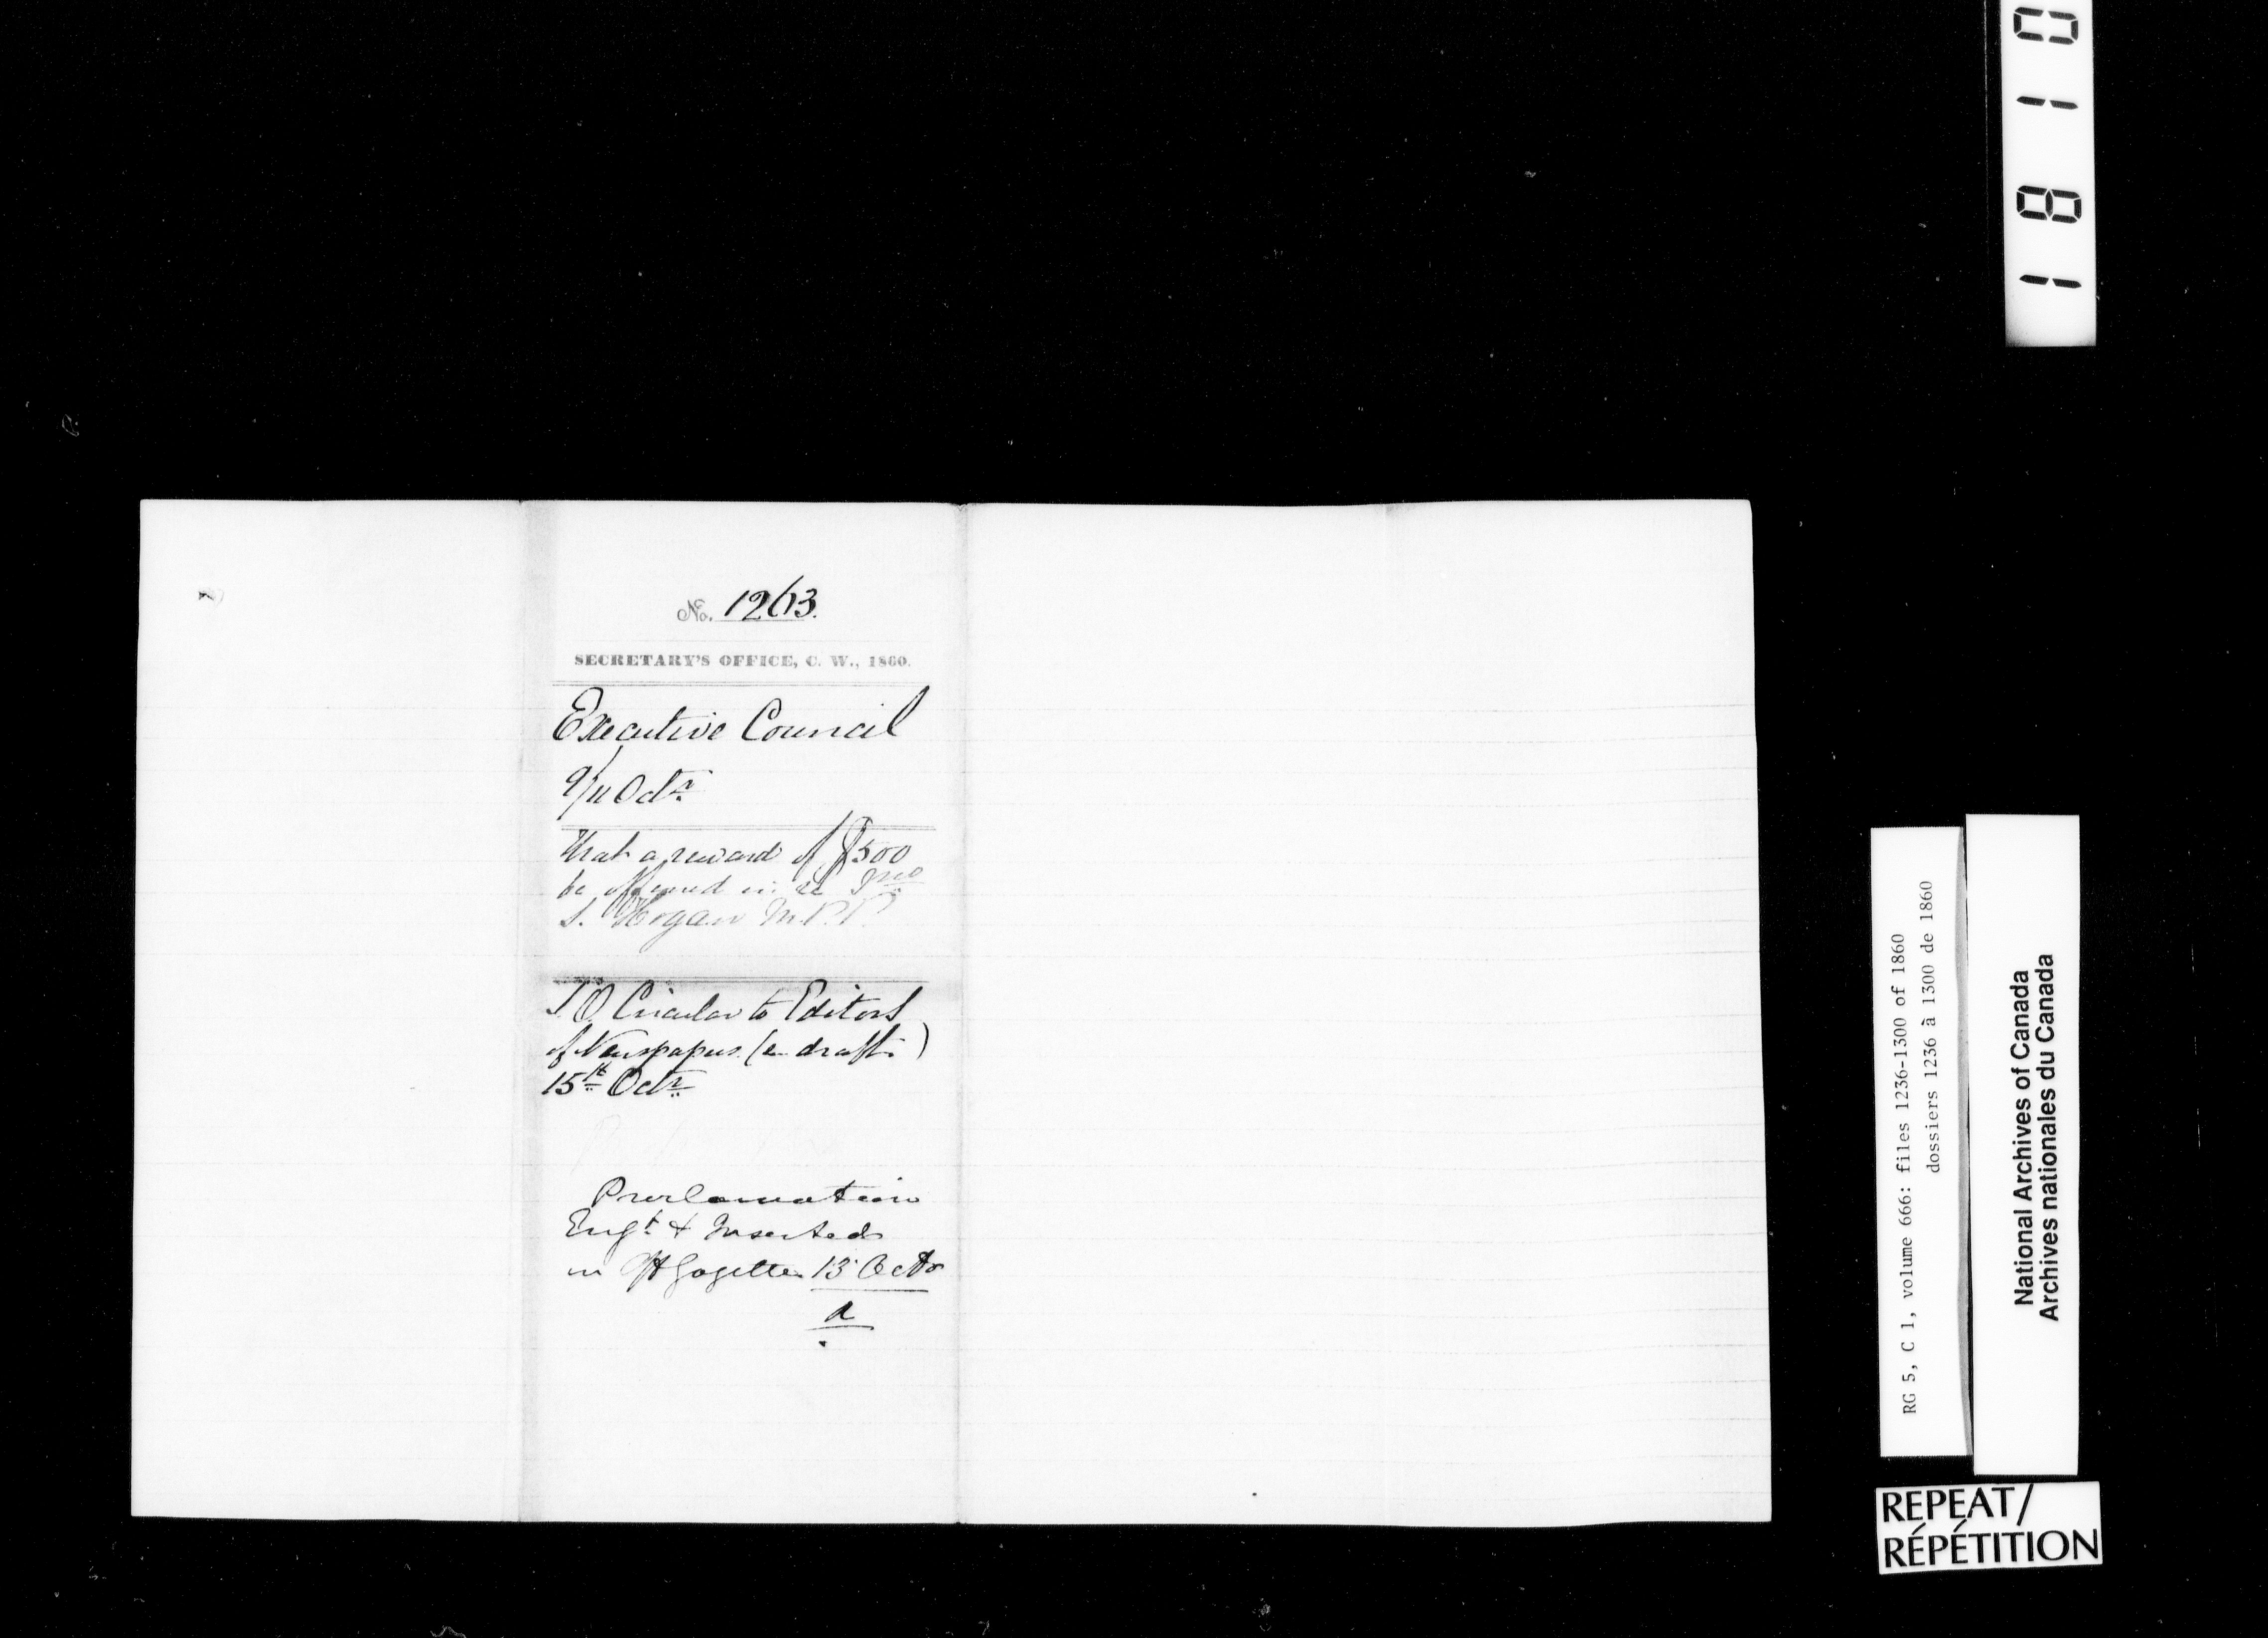 No. 1263.
SECRETARY'S OFFICE, C. W., 1860.
Executive Council
9/11 Octr
That a reward of $500
be offered in re Jno
S. Hogan M.P.P.
Circular to Editors
of Newspapers (a draft)
15th Octr
Proclamation
Engd & Inserted
in Gazette 13 Octr
1810
RG 5, C 1, volume 666: files 1236-1300 of 1860
dossiers 1236 à 1300 de 1860
National Archives of Canada
Archives nationales du Canada
REPEAT/
RÉPÉTITION